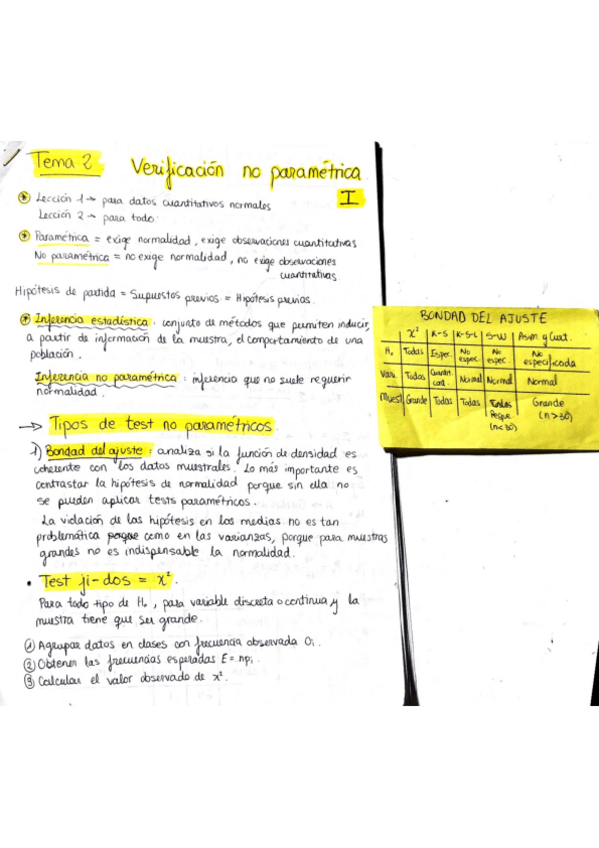 Tema 2 Verificación no paramétrica
I
* Lección 1 → para datos cuantitativos normales
Lección 2 → para todo.
* Paramétrica = exige normalidad, exige observaciones cuantitativas
No paramétrica = no exige normalidad, no exige observaciones
cuantitativas.
Hipótesis de partida = Supuestos previos = Hipótesis previas.
* Inferencia estadística: conjunto de métodos que permiten inducir,
a partir de información de la muestra, el comportamiento de una
población.
Inferencia no paramétrica: inferencia que no suele requerir
normalidad.
→ Tipos de test no paramétricos.
1) Bondad del ajuste: analiza si la función de densidad es
coherente con los datos muestrales. Lo más importante es
contrastar la hipótesis de normalidad porque sin ella no
se pueden aplicar tests paramétricos.
La violación de las hipótesis en las medias no es tan
problemática como en las varianzas, porque para muestras
grandes no es indispensable la normalidad.
• Test ji-dos = χ².
Para todo tipo de H₀, para variable discreta o continua y la
muestra tiene que ser grande.
① Agrupar datos en clases con frecuencia observada Oi.
② Obtener las frecuencias esperadas E = npi.
③ Calcular el valor observado de χ².
BONDAD DEL AJUSTE
χ² K-S K-S-L S-W Asim y Curt.
H₀ Todas Espec. No espec. No espec. No especificada
Vari. Todas Cuantit. cont. Normal Normal Normal
Muest Grande Todas Todas Todas Peque. (n<30) Grande (n>30)